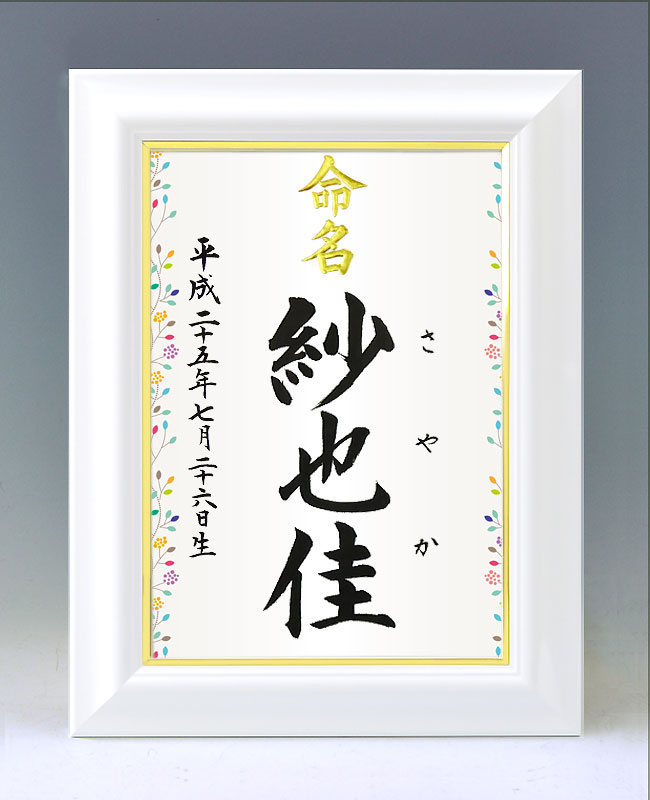 命名
さやか
紗也佳
平成二十五年七月二十六日生